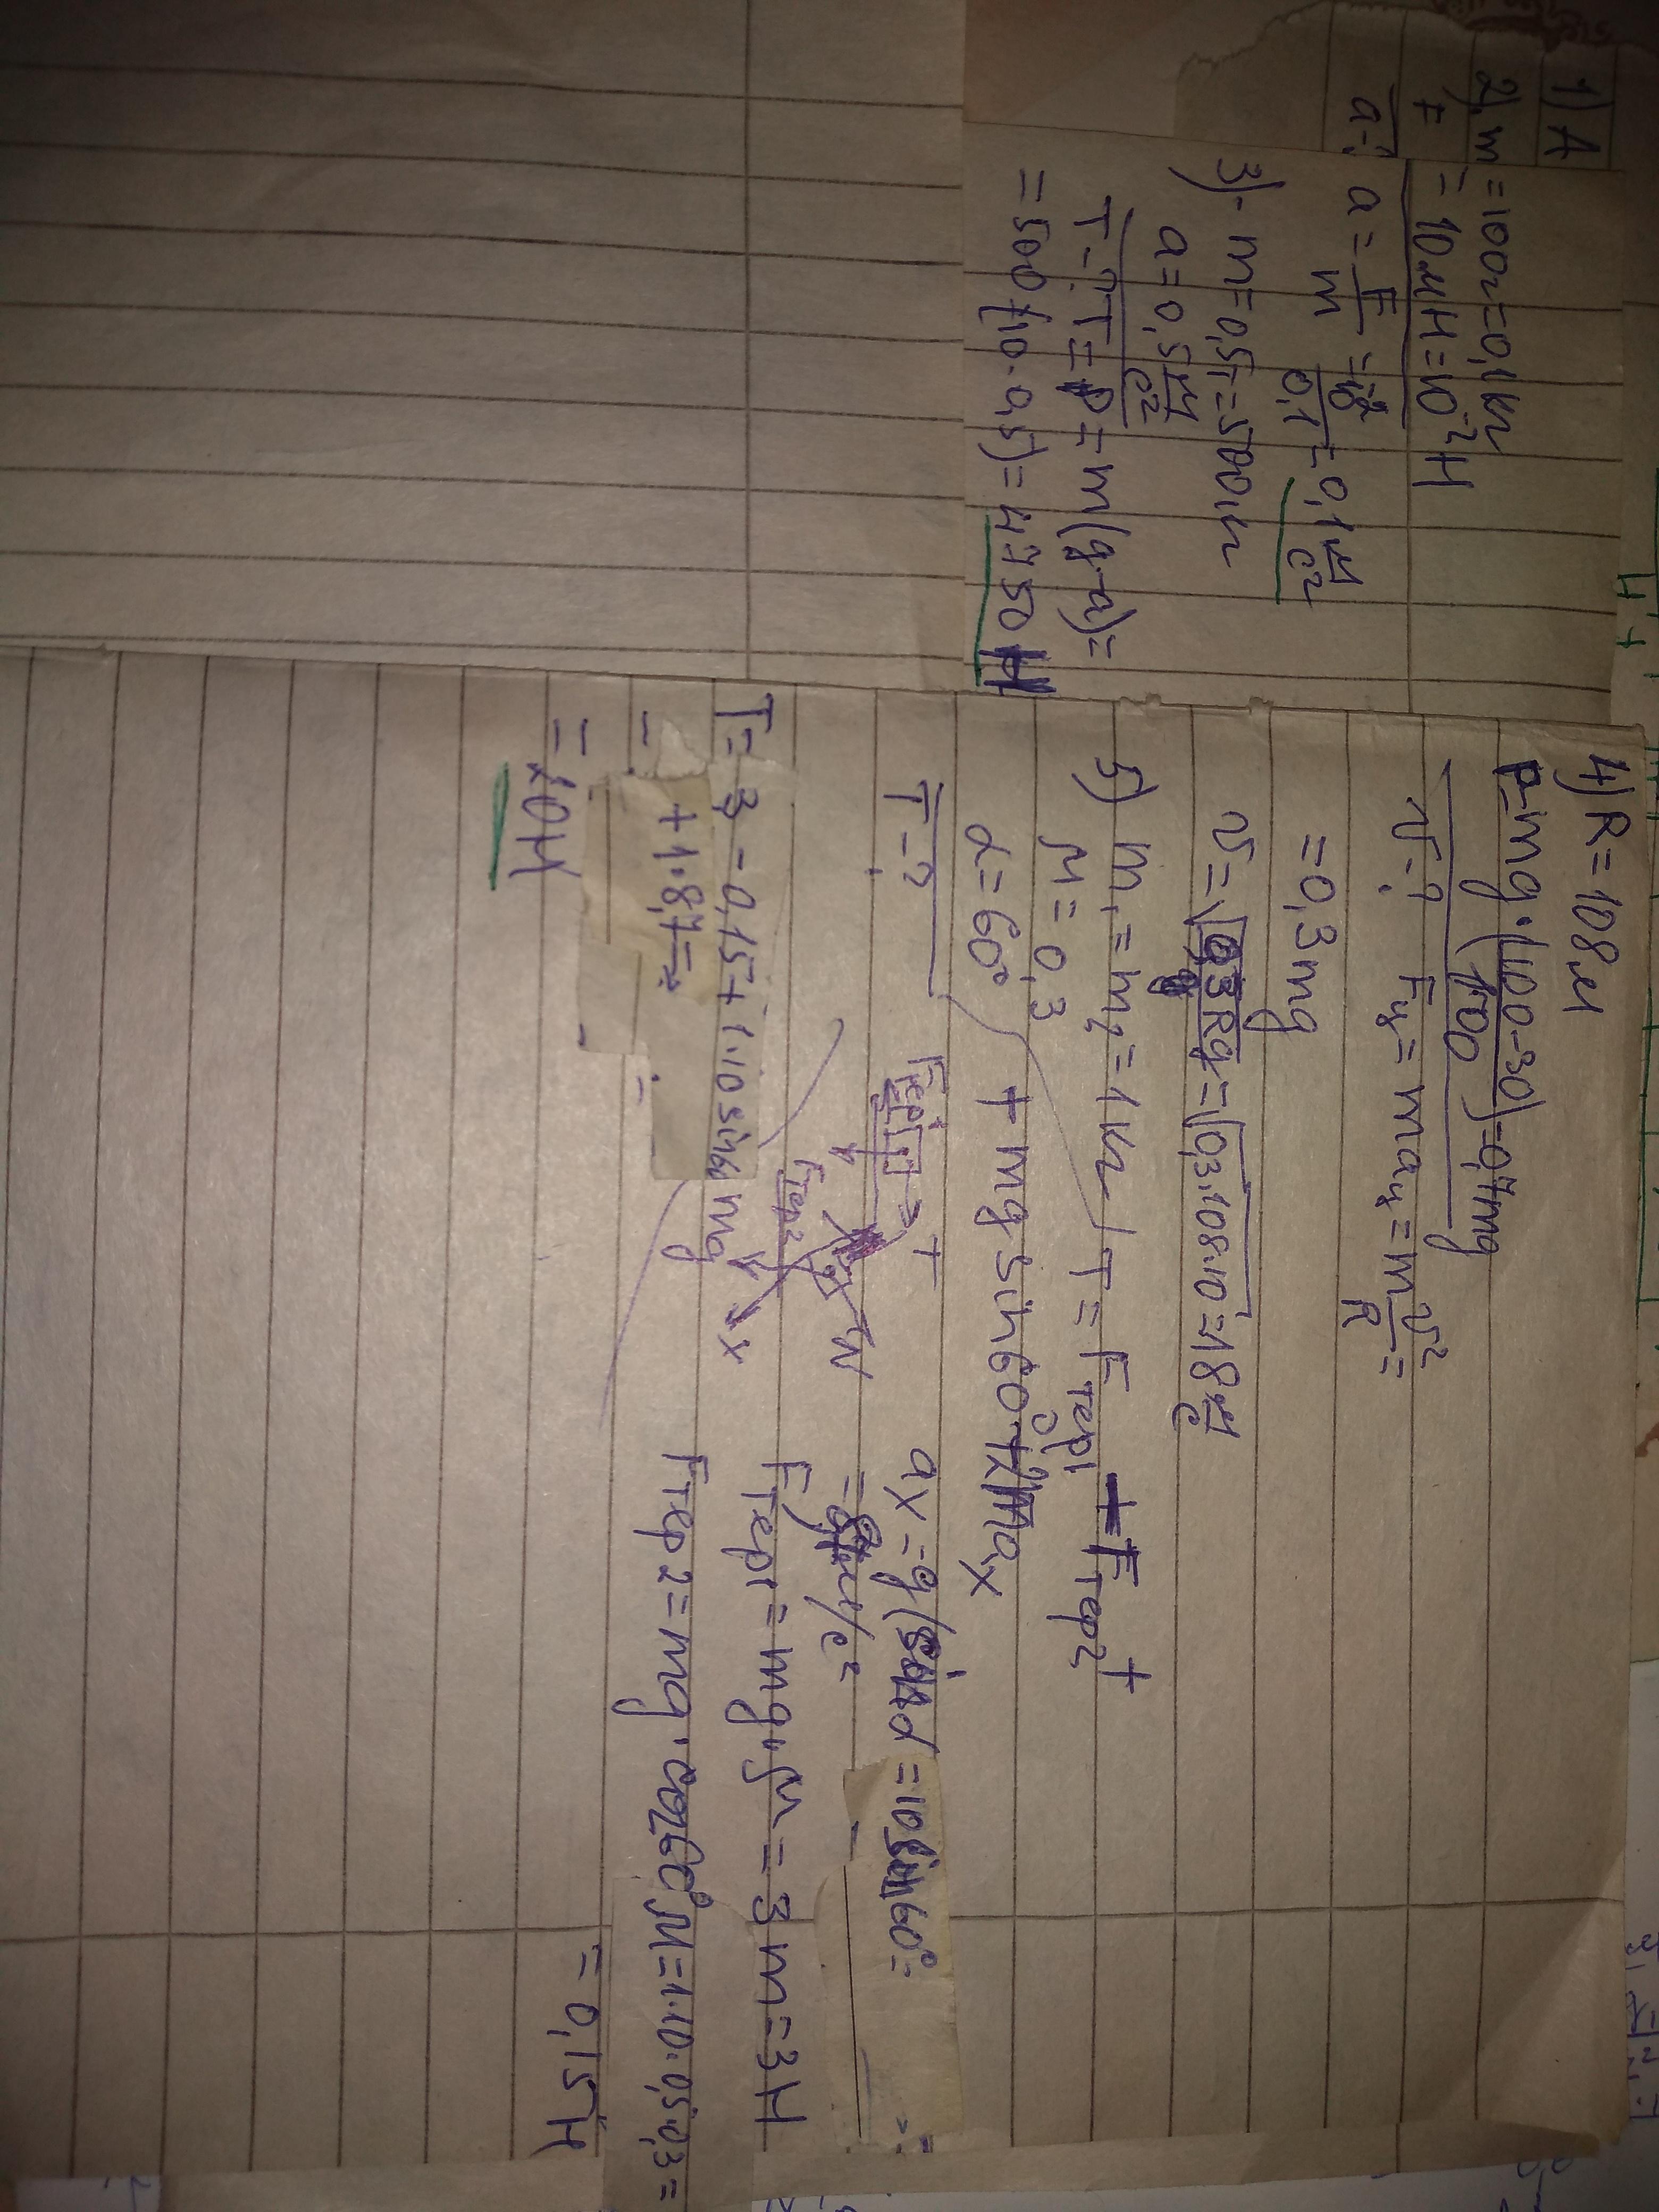 1) A
2) m = 100г = 0,1 кг
F = 10 мН = 10⁻² Н
a-?
a = F/m = 10⁻²/0,1 = 0,1 м/с²
3) m = 0,5т = 500 кг
a = 0,5 м/с²
T-? T = P = m(g-a) =
= 500 (10-0,5) = 4750 Н
4) R = 108 м
P = mg · (100-30)/100 = 0,7mg
v-? Fy = may = m v²/R =
= 0,3 mg
v = √0,3Rg = √0,3·108·10 = 18 м/с
5) m₁ = m₂ = 1 кг
μ = 0,3
α = 60°
T-?
T = Fтер1 + Fтер2 +
+ mg sin60° + 2max
Fтер1
T
N
Fтер2
mg
x
ax = g sinα = 10 sin60° =
м/с²
Fтер1 = mg·μ = 3m = 3Н
Fтер2 = mg·cos60°μ = 1·10·0,5·0,3 =
= 0,15 Н
T = 3 - 0,15 + 1·10 sin60
+ 1·8,7 =